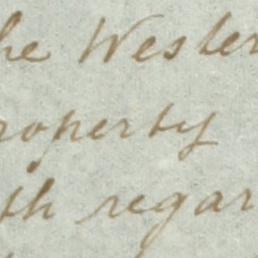 he Wester
roperty
th regar